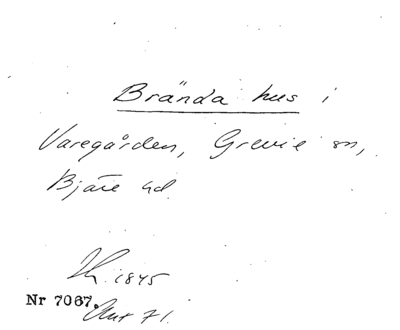 Brända hus i
Varegården, Grevie sn,
Bjäre hd.
1845
Nr 7067.
71.